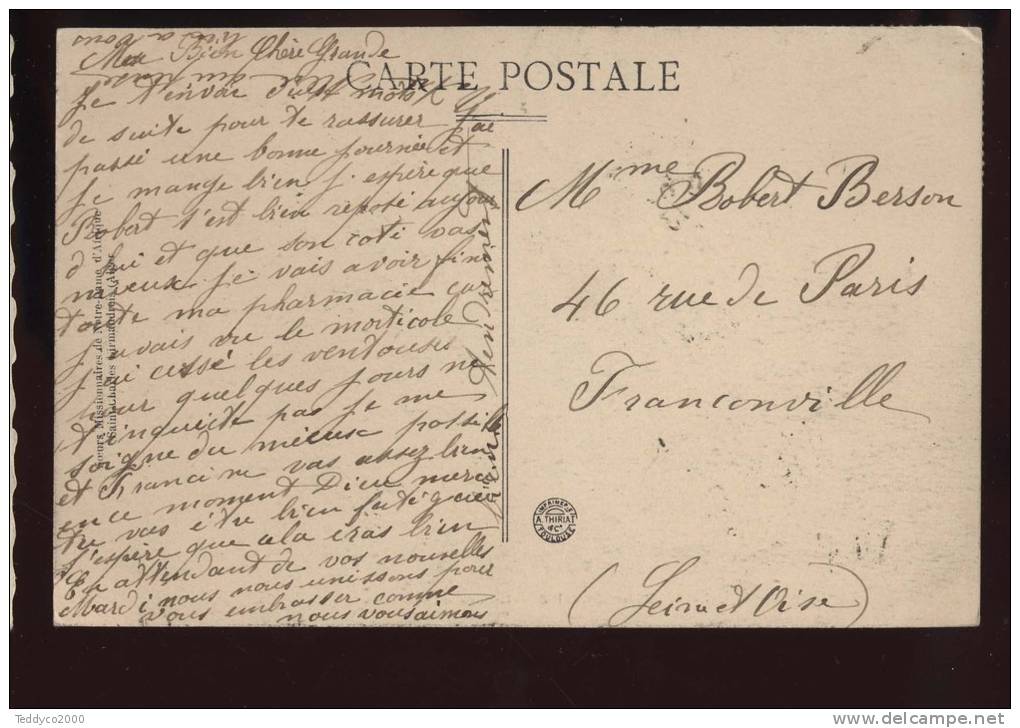 CARTE POSTALE
Ma Bien Chère Grande
Je t'envoie cest mots
de suite pour te rassurer j'ai
passé une bonne journée et
je mange bien j'espère que
Robert s'est bien reposé aujour
d'hui et que son coté vas
mieux je vais avoir fini
toute ma pharmacie car
j'avais vu le morticole
j'ai cessé les ventouses
pour quelques jours ne
t'inquiète pas je me
soigne du mieux possible
et Francine vas assez bien
en ce moment Dieu merci
tu vas être bien fatiguée
j'espère que a la
En attendant de vos nouvelles
Mardi nous nous unissons pour
vous embrasser comme
nous vous aimons
Mme Robert Berson
46 rue de Paris
Franconville
(Seine et Oise)
Sœurs Missionnaires de Notre-Dame d'Afrique
Saint-Charles Birmandreis (Alger)
IMPRIMERIE
A. THIRIAT
& Cie
TOULOUSE
Teddyco2000
http://www.delcampe.net